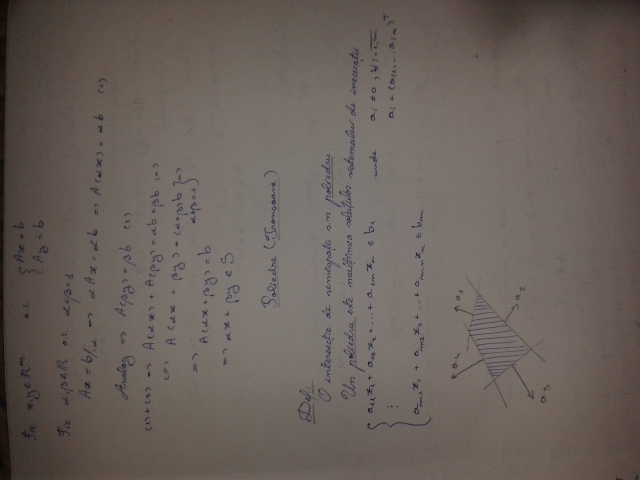 Fie x,y∈ℝⁿ a.î. { Ax=b
Ay=b
Fie α,β∈ℝ a.î. α+β=1
Ax=b/·α => αAx=αb => A(αx)=αb (1)
Analog => A(βy)=βb (2)
(1)+(2) => A(αx)+A(βy)=αb+βb (=)
(=) A(αx+βy)=(α+β)b } =>
α+β=1
=> A(αx+βy)=b
=> αx+βy∈S
Poliedre
Def:
O intersecție de semispații un poliedru
Un poliedru este mulțimea soluțiilor sistemului de inecuații
{ a₁₁x₁+a₁₂x₂+...+a₁ₙxₙ≤b₁ unde aᵢ≠0, ∀i=1,m
⋮ aᵢ=(aᵢ₁...aᵢₙ)ᵀ
aₘ₁x₁+aₘ₂x₂+...+aₘₙxₙ≤bₘ
a₁
a₄
a₂
a₃